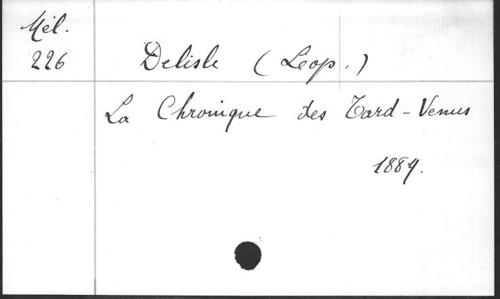 Mél.
226
Delisle (Leop.)
La Chronique des Tard-Venus
1889.